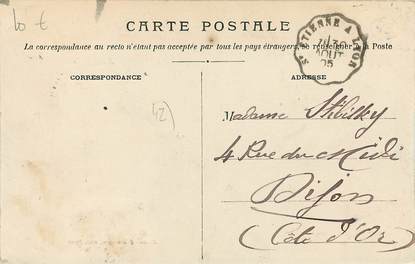 10 €
CARTE POSTALE
La correspondance au recto n'étant pas acceptée par tous les pays étrangers, se renseigner à la Poste
CORRESPONDANCE
ADRESSE
ST ETIENNE A LYON
AOUT
05
42
Madame
4 Rue du Midi
Dijon
(Côte d'Or)